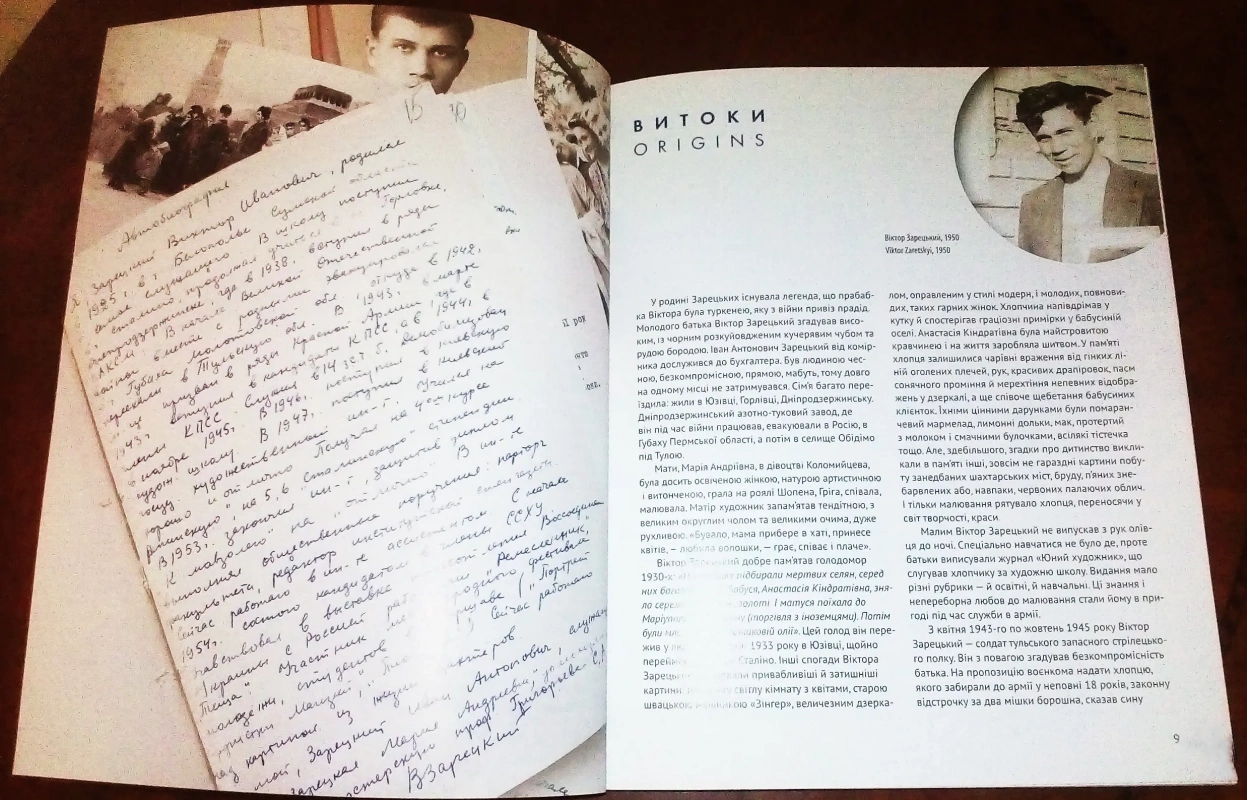 15 30
Автобиография
Зарецкий Виктор Иванович, родился
1925 г. в г. Белополье Сумской области
семье служащего. В школу поступил
продолжал учиться Горловке,
Днепродзержинске, где в 1938, вступил в ряды
ВЛКСМ. В начале Великой Отечественной
войны вместе с родными эвакуировался
г. Губаха Молотовской обл. откуда в 1942,
переехали в Тульскую обл. В 1943, в марте
призван в ряды Красной Армии, где в
1943, вступил в кандидаты КПСС, а в 1944, в
члены КПСС. Служил в 143 с.т. б. Демобилизован
в ноябре 1945. В 1946, поступил в Киевскую
худож. школу. В 1947, поступил в Киевский
госуд. художественный ин-т. Учился на
хорошо и отлично. Получал на 4 ом курсе
Репинскую, на 5, 6 Сталинскую стипендии.
В 1953, закончил ин-т, защитив диплом
К мавзолею на "отлично". В ин-те
выполнял общественные поручения: парторг
факультета, редактор институтской стенгазеты.
Сейчас работаю в ин-те ассистентом. С начала
1954 г. состою кандидатом в члены ССХУ.
Участвовал в выставке 300 летия Воссоединения
Украины с Россией работой "Ремесленник",
Участник международного фестиваля
молодежи, студентов в Варшаве ("Портрет
Сейчас работаю
над картиной из жизни шахтеров.
мой, Зарецкий Иван Антонович, служащий
Зарецкая Мария Андреевна, домохозяйка
мастерскую проф. Григорьева С. А.
ВЗарецкий
ВИТОКИ
ORIGINS
Віктор Зарецький, 1950
Viktor Zaretskyi, 1950
У родині Зарецьких існувала легенда, що прабаб-
ка Віктора була туркенею, яку з війни привіз прадід.
Молодого батька Віктор Зарецький згадував висо-
ким, із чорним розкуйовдженим кучерявим чубом та
рудою бородою. Іван Антонович Зарецький від комір-
ника дослужився до бухгалтера. Був людиною чес-
ною, безкомпромісною, прямою, мабуть, тому довго
на одному місці не затримувався. Сім'я багато пере-
їздила: жили в Юзівці, Горлівці, Дніпродзержинську.
Дніпродзержинський азотно-туковий завод, де
він під час війни працював, евакуювали в Росію, в
Губаху Пермської області, а потім в селище Обідімо
під Тулою.
Мати, Марія Андріївна, в дівоцтві Коломийцева,
була досить освіченою жінкою, натурою артистичною
і витонченою, грала на роялі Шопена, Гріга, співала,
малювала. Матір художник запам'ятав тендітною, з
великим округлим чолом та великими очима, дуже
рухливою. «Бувало, мама прибере в хаті, принесе
квітів, — любила волошки, — грає, співає і плаче».
Віктор Зарецький добре пам'ятав голодомор
1930-х: підбирали мертвих селян, серед
них бага бабуся, Анастасія Кіндратівна, зня-
ла сере золоті. І матуся поїхала до
Маріуп ну (торгівля з іноземцями). Потім
були мл никовій олії». Цей голод він пере-
жив у лю 1933 року в Юзівці, щойно
перейм Сталіно. Інші спогади Віктора
Зарець привабливіші й затишніші
картини: світлу кімнату з квітами, старою
швацькою машинкою «Зінгер», величезним дзерка-
лом, оправленим у стилі модерн, і молодих, повнови-
дих, таких гарних жінок. Хлопчина напівдрімав у
кутку й спостерігав граціозні примірки у бабусиній
оселі. Анастасія Кіндратівна була майстровитою
кравчинею і на життя заробляла шитвом. У пам'яті
хлопця залишилися чарівні враження від гінких лі-
ній оголених плечей, рук, красивих драпіровок, пасм
сонячного проміння й мерехтіння непевних відобра-
жень у дзеркалі, а ще співоче щебетання бабусиних
клієнток. Їхніми цінними дарунками були помаран-
чевий мармелад, лимонні дольки, мак, протертий
з молоком і смачними булочками, всілякі тістечка
тощо. Але, здебільшого, згадки про дитинство викли-
кали в пам'яті інші, зовсім не гаразді картини побу-
ту занедбаних шахтарських міст, бруду, п'яних зне-
барвлених або, навпаки, червоних палаючих облич.
І тільки малювання рятувало хлопця, переносячи у
світ творчості, краси.
Малим Віктор Зарецький не випускав з рук олів-
ця до ночі. Спеціально навчатися не було де, проте
батьки виписували журнал «Юний художник», що
слугував хлопчику за художню школу. Видання мало
різні рубрики — й освітні, й навчальні. Ці знання і
непереборна любов до малювання стали йому в при-
годі під час служби в армії.
З квітня 1943-го по жовтень 1945 року Віктор
Зарецький — солдат тульського запасного стрілецько-
го полку. Він з повагою згадував безкомпромісність
батька. На пропозицію воєнкома надати хлопцю,
якого забирали до армії у неповні 18 років, законну
відстрочку за два мішки борошна, сказав сину
9